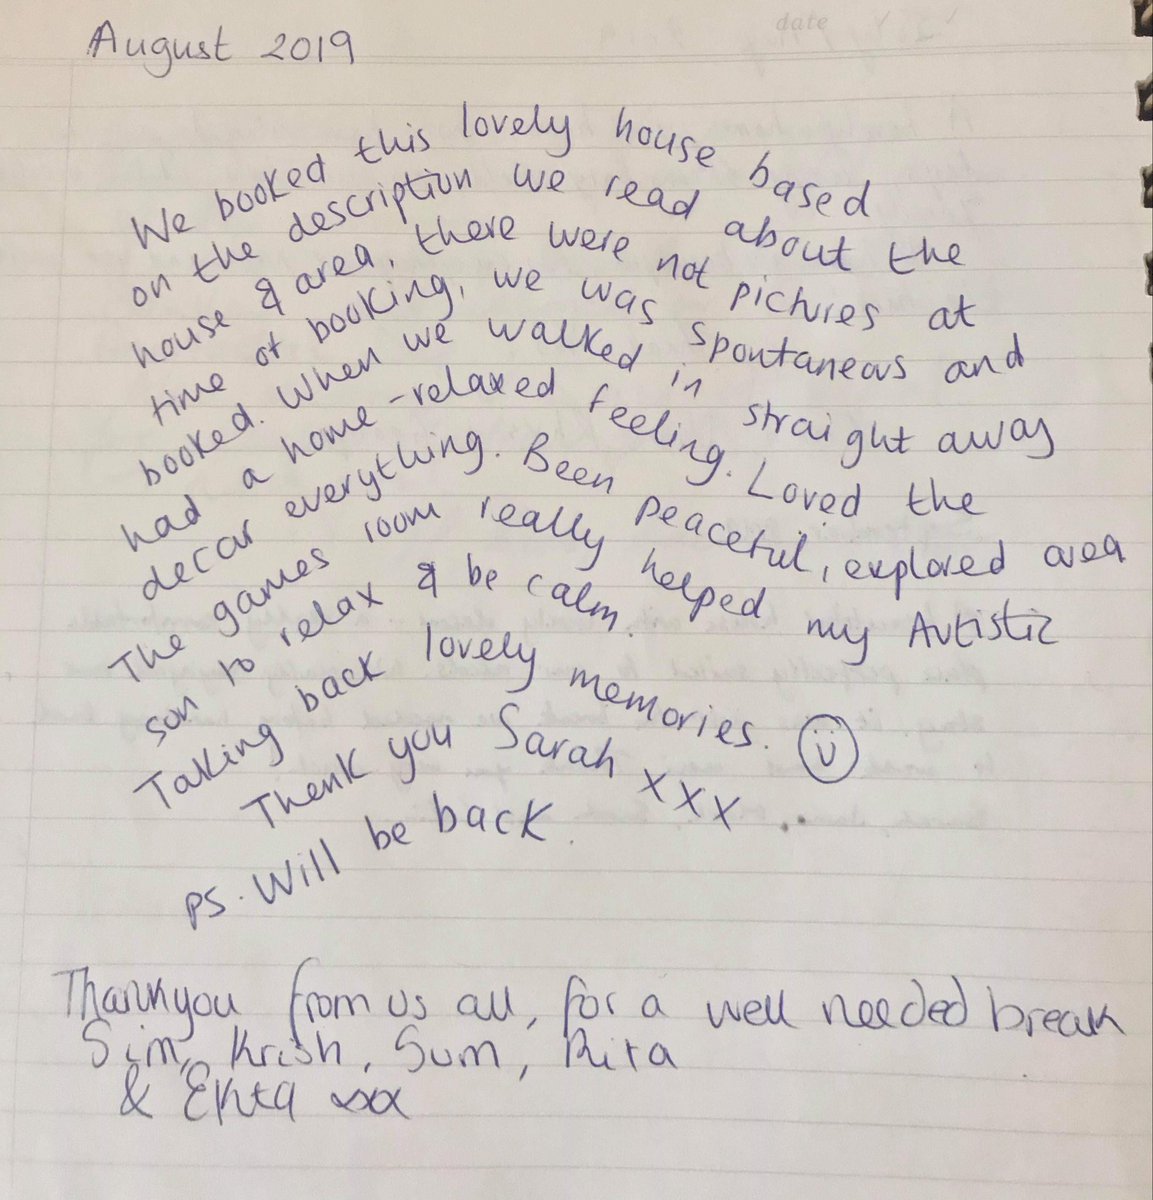 date
August 2019
We booked this lovely house based
on the description we read about the
house & area, there were not pictures at
time of booking, we was spontaneous and
booked. When we walked in straight away
had a home-relaxed feeling. Loved the
decor everything. Been peaceful, explored area
The games room really helped my Autistic
son to relax & be calm.
Taking back lovely memories.
Thank you Sarah xxx
ps. Will be back
Thankyou from us all, for a well needed break
Sim, Krish, Sum, Rita
& Ekta xx